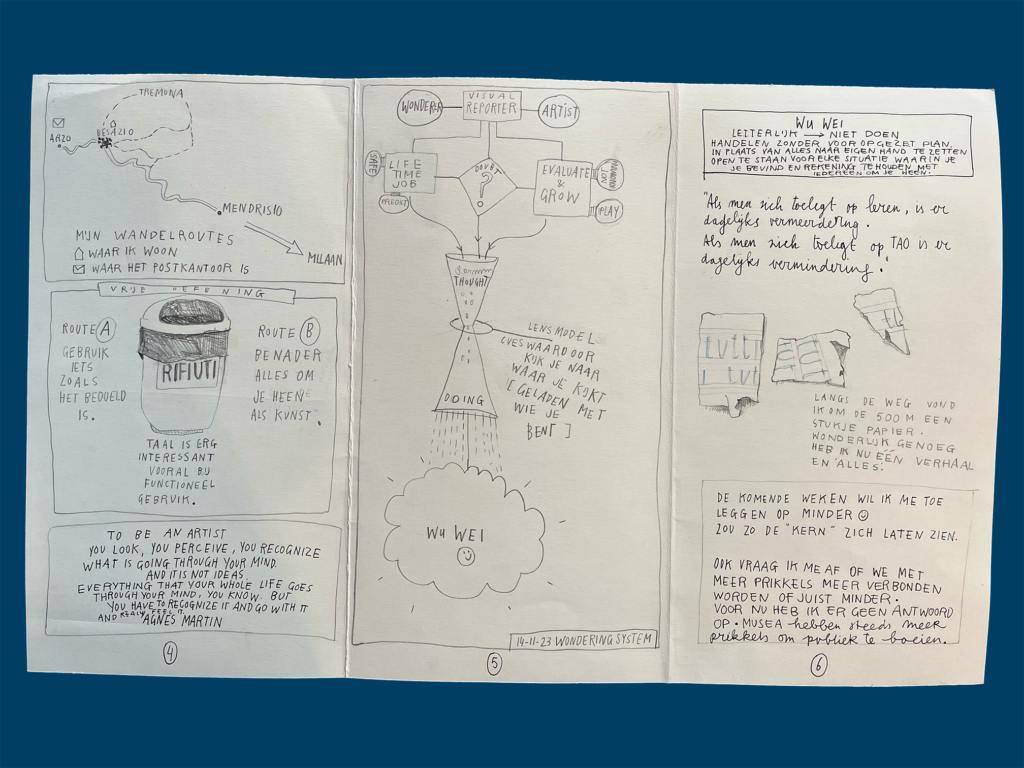 TREMONA
BESAZIO
ARZO
MENDRISIO
MILAAN
MIJN WANDELROUTES
WAAR IK WOON
WAAR HET POSTKANTOOR IS
VRIJE OEFENING
ROUTE A
GEBRUIK
IETS
ZOALS
HET BEDOELD
IS.
RIFIUTI
ROUTE B
BENADER
ALLES OM
JE HEEN
ALS KUNST.
TAAL IS ERG
INTERESSANT
VOORAL BIJ
FUNCTIONEEL
GEBRUIK.
TO BE AN ARTIST
YOU LOOK, YOU PERCEIVE, YOU RECOGNIZE
WHAT IS GOING THROUGH YOUR MIND.
AND IT IS NOT IDEAS.
EVERYTHING THAT YOUR WHOLE LIFE GOES
THROUGH YOUR MIND, YOU KNOW. BUT
YOU HAVE TO RECOGNIZE IT AND GO WITH IT
AND REALLY FEEL IT.
AGNES MARTIN
4
WONDERER
VISUAL
REPORTER
ARTIST
SAFE
LIFE
TIME
JOB
PREDICT
DOUBT
?
EVALUATE
&
GROW
PLAY
THOUGHT
LENSMODEL
LVES WAARDOOR
KIJK JE NAAR
WAAR JE KIJKT
[GELADEN MET
WIE JE
BENT]
DOING
WU WEI
14-11-23 WONDERING SYSTEM
5
WU WEI
LETTERLIJK → NIET DOEN
HANDELEN ZONDER VOOROPGEZET PLAN.
IN PLAATS VAN ALLES NAAR EIGEN HAND TE ZETTEN
OPEN TE STAAN VOOR ELKE SITUATIE WAARIN JE
JE BEVIND EN REKENING TE HOUDEN MET
IEDEREEN OM JE HEEN.
"Als men zich toelegt op leren, is er
dagelijks vermeerdering.
Als men zich toelegt op TAO is er
dagelijks vermindering."
tutti
tuti
LANGS DE WEG VOND
IK OM DE 500 M EEN
STUKJE PAPIER.
WONDERLIJK GENOEG
HEB IK NU ÉÉN VERHAAL
EN ALLES.
DE KOMENDE WEKEN WIL IK ME TOE
LEGGEN OP MINDER ☺
ZOU ZO DE "KERN" ZICH LATEN ZIEN.
OOK VRAAG IK ME AF OF WE MET
MEER PRIKKELS MEER VERBONDEN
WORDEN OF JUIST MINDER.
VOOR NU HEB IK ER GEEN ANTWOORD
OP. MUSEA hebben steeds meer
prikkels om publiek te boeien.
6